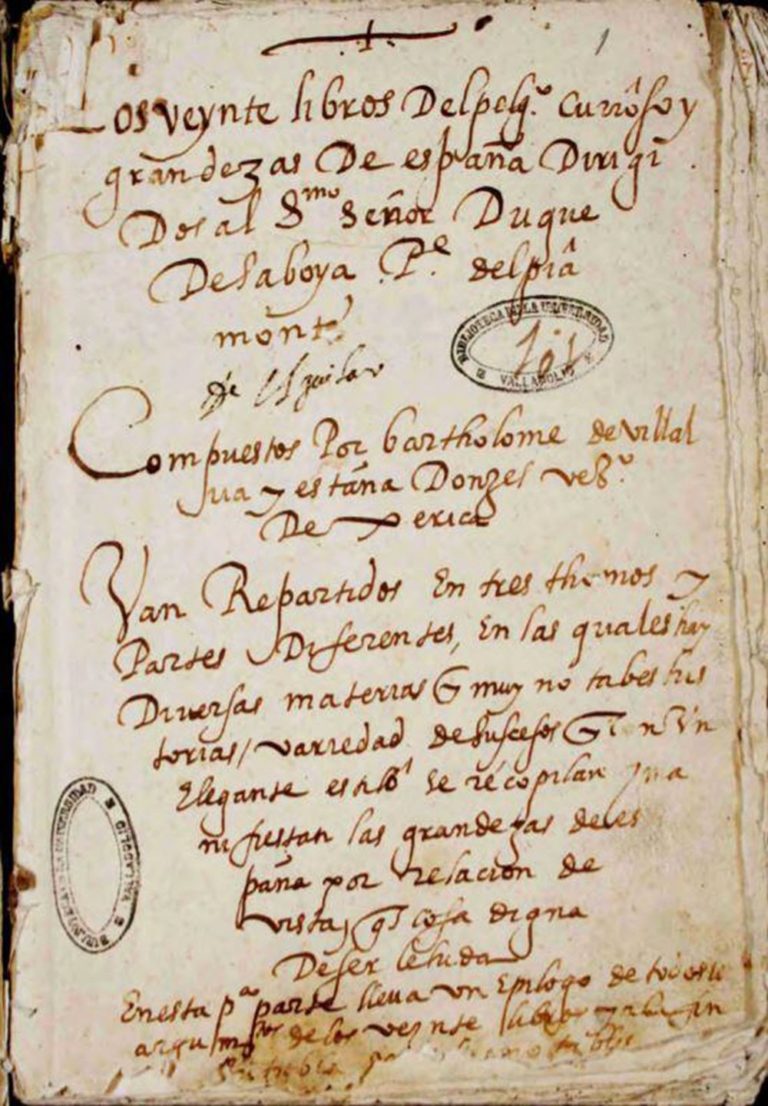 1
Los veynte libros Del pelg.º curiôso y
grandezas De españa Dirigi
Dos al S.mo Señor Duque
De Saboya P.e del piâ
monte
de Aguilar
BIBLIOTECA DE LA UNIVERSIDAD
VALLADOLID
Compuestos Por bartholome de villal
va y estaña Donzel vez.º
De Xerica
Van Repartidos En tres thomos y
Partes Diferentes, En las quales hay
Diversas materias q muy notables his
torias, variedad de Suscesos q en Un
Elegante estilo se recopilan y ma
nifiestan las grandezas de es
paña por relacion de
vista, q cosa digna
De ser lehida
BIBLIOTECA DE LA UNIVERSIDAD
VALLADOLID
En esta p.ª parte lleva un Epilogo de todos
argum.tos de los veynte libros